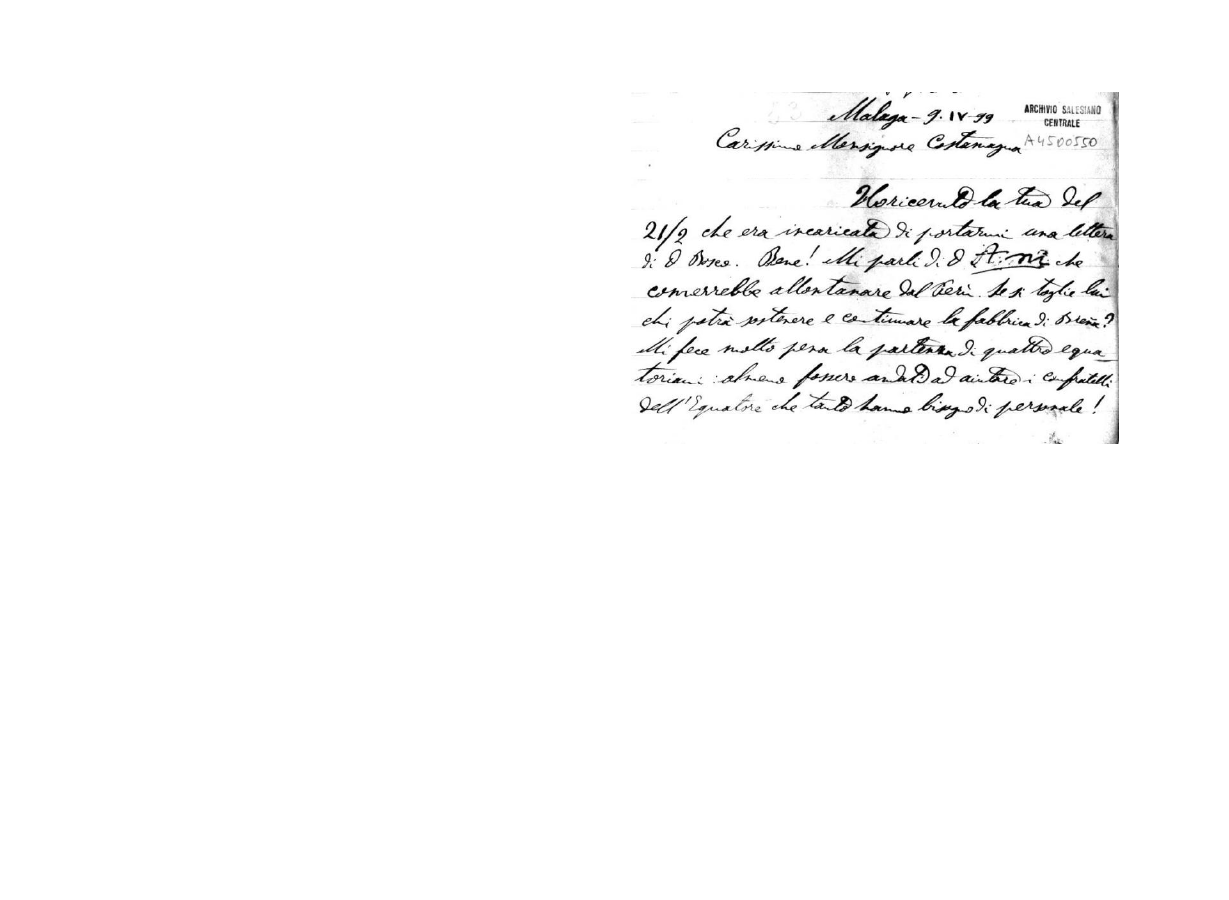 Malaga - 9. IV - 99
ARCHIVIO SALESIANO
CENTRALE
A4500550
Carissimo Monsignore Costamagna
Ho ricevuto la tua del
21/2 che era incaricata di portarmi una lettera
di D Bosco. Bene! Mi parli di D che
converrebbe allontanare dal Perù. Se si toglie lui
chi potrà sostenere e continuare la fabbrica di Breña?
Mi fece molto pena la partenza di quattro equa_
toriani: almeno fossero andati ad aiutare i confratelli
dell'Equatore che tanto hanno bisogno di personale!